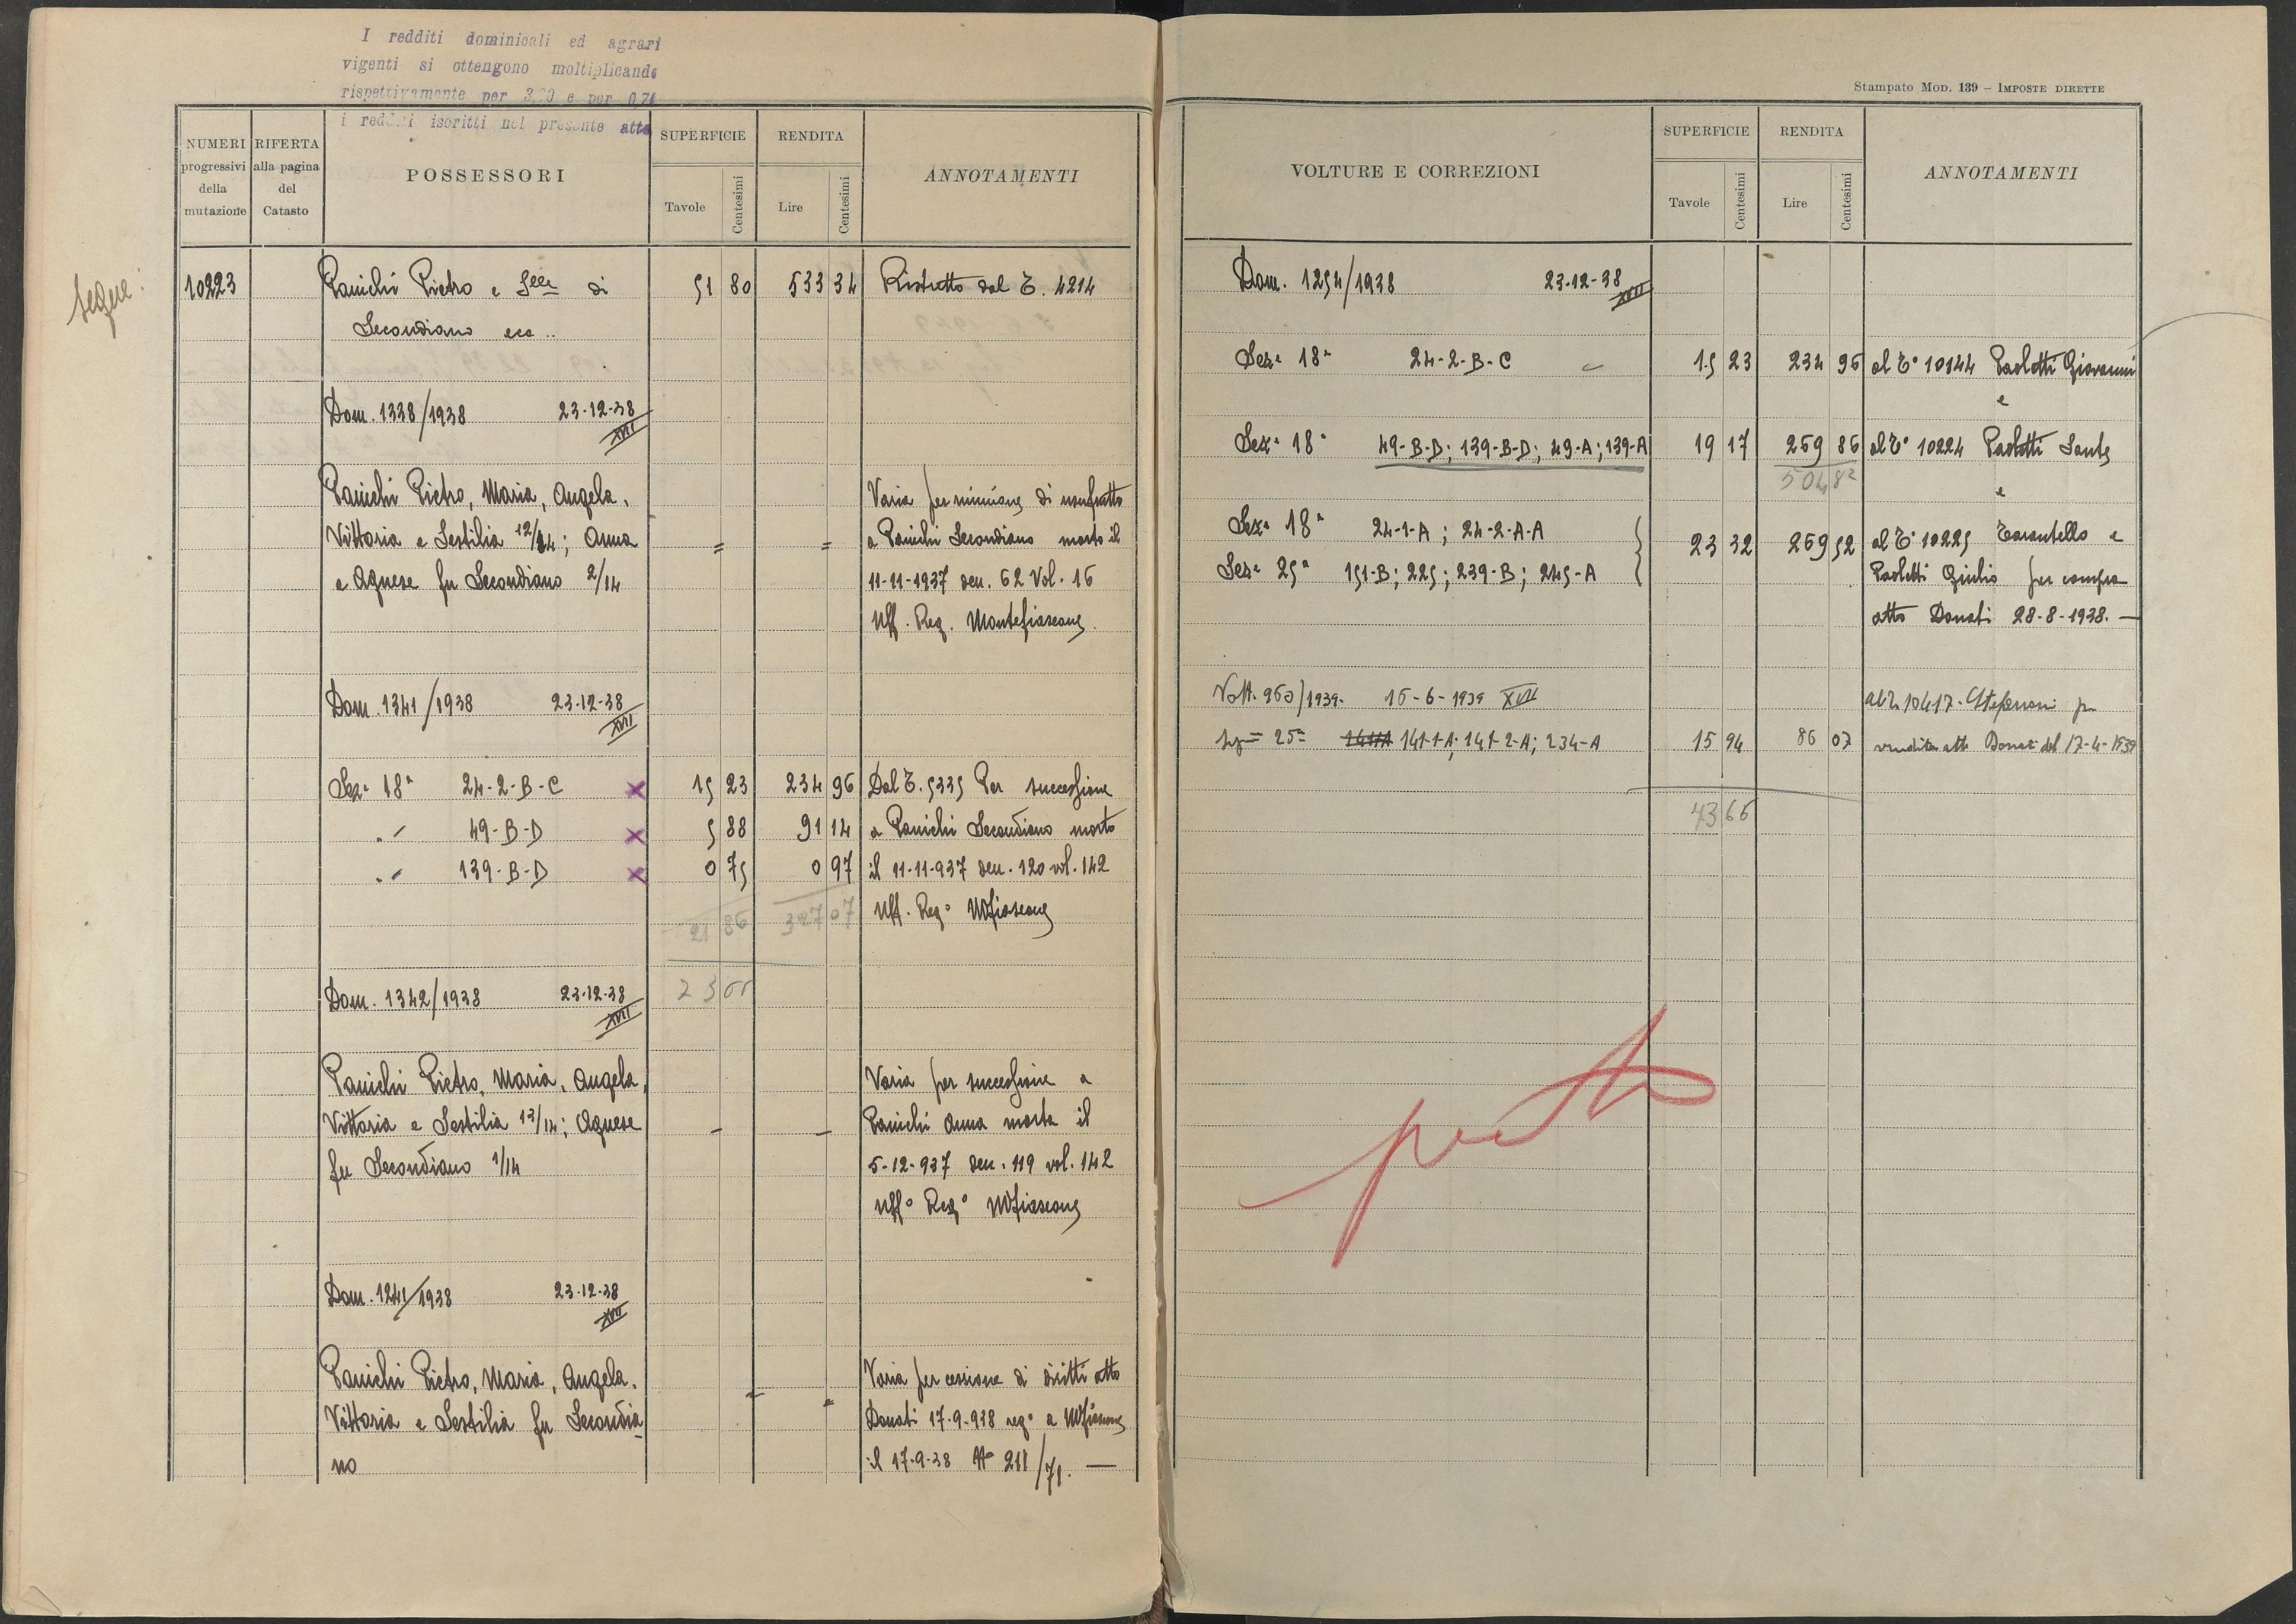 I redditi dominicali ed agrari
vigenti si ottengono moltiplicando
rispettivamente per 3,20 e per 0,74
i redditi iscritti nel presente atto
NUMERI progressivi della mutazione
RIFERTA alla pagina del Catasto
POSSESSORI
SUPERFICIE
Tavole Centesimi
RENDITA
Lire Centesimi
ANNOTAMENTI
segue:
10223 Panichi Pietro e Slle di 51 80 533 34 Ristretto dal T. 4214
Secondiano ecc..
Dom. 1338/1938 23-12-38 XVII
Panichi Pietro, Maria, Angela, Varia per riunione di usufrutto
Vittoria e Sestilia 12/14; Anna = = a Panichi Secondiano morto il
e Agnese fu Secondiano 2/14 11-11-1937 den. 62 Vol. 16
Uff. Reg. Montefiascone
Dom. 1341/1938 23-12-38 XVII
Sez. 18ª 24-2-B-C x 15 23 234 96 Dal T. 5335 Per successione
" 49-B-D x 5 88 91 14 a Panichi Secondiano morto
" 139-B-D x 0 75 0 97 il 11-11-937 den. 120 vol. 142
21 86 327 07 Uff. Reg° Mfiascone
Dom. 1342/1938 23-12-38 XVII
Panichi Pietro, Maria, Angela, Varia per successione a
Vittoria e Sestilia 13/14; Agnese - - Panichi Anna morta il
fu Secondiano 1/14 5-12-937 den. 119 vol. 142
Uff° Reg° Mfiascone
Dom. 1241/1938 23-12-38 XVII
Panichi Pietro, Maria, Angela, Varia per cessione di diritti atto
Vittoria e Sestilia fu Secondia- - - Donati 17-9-938 reg° a Mfiascone
no il 17-9-38 N° 211/71. —
Stampato Mod. 139 – Imposte dirette
VOLTURE E CORREZIONI
SUPERFICIE
Tavole Centesimi
RENDITA
Lire Centesimi
ANNOTAMENTI
Dom. 1254/1938 23-12-38 XVII
Sez. 18ª 24-2-B-C 15 23 234 96 al T° 10144 Paoletti Giovanni
e
Sez. 18ª 49-B-D; 139-B-D; 49-A; 139-A 19 17 269 86 al T° 10224 Paoletti Sante
504 82
e
Sez. 18ª 24-1-A; 24-2-A-A 23 32 269 52 al T° 10225 Tarantello e
Sez. 25ª 151-B; 225; 239-B; 245-A Paoletti Giulio per compra
atto Donati 28-8-1938. —
Volt. 960/1939. 16-6-1939 XVII al T. 10417. Stefanoni per
Sez. 25ª 141-1-A; 141-2-A; 234-A 15 94 86 07 vendita atto Donati del 17-4-1939
43 66